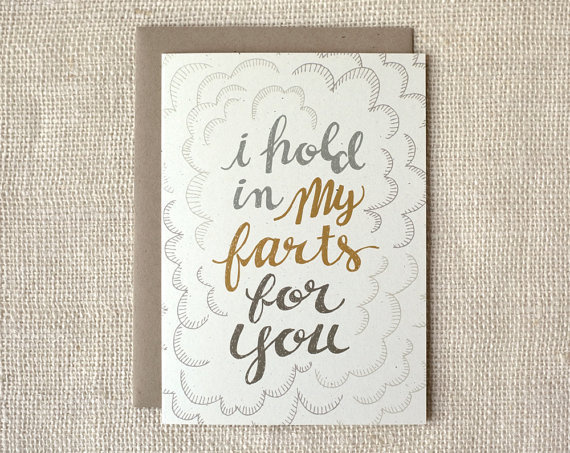 i hold
in My
farts
for
you